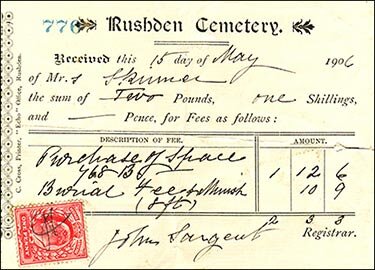 776 Rushden Cemetery.
Received this 15 day of May 1906
of Mrs Skinner
the sum of Two Pounds, one Shillings,
and — Pence, for Fees as follows:
DESCRIPTION OF FEE. AMOUNT.
Purchase of Space
768 B 1 12 6
Burial Fees 10 9
(8ft)
2 3 3
John Sargent Registrar.
C. Cross, Printer, "Echo" Office, Rushden.